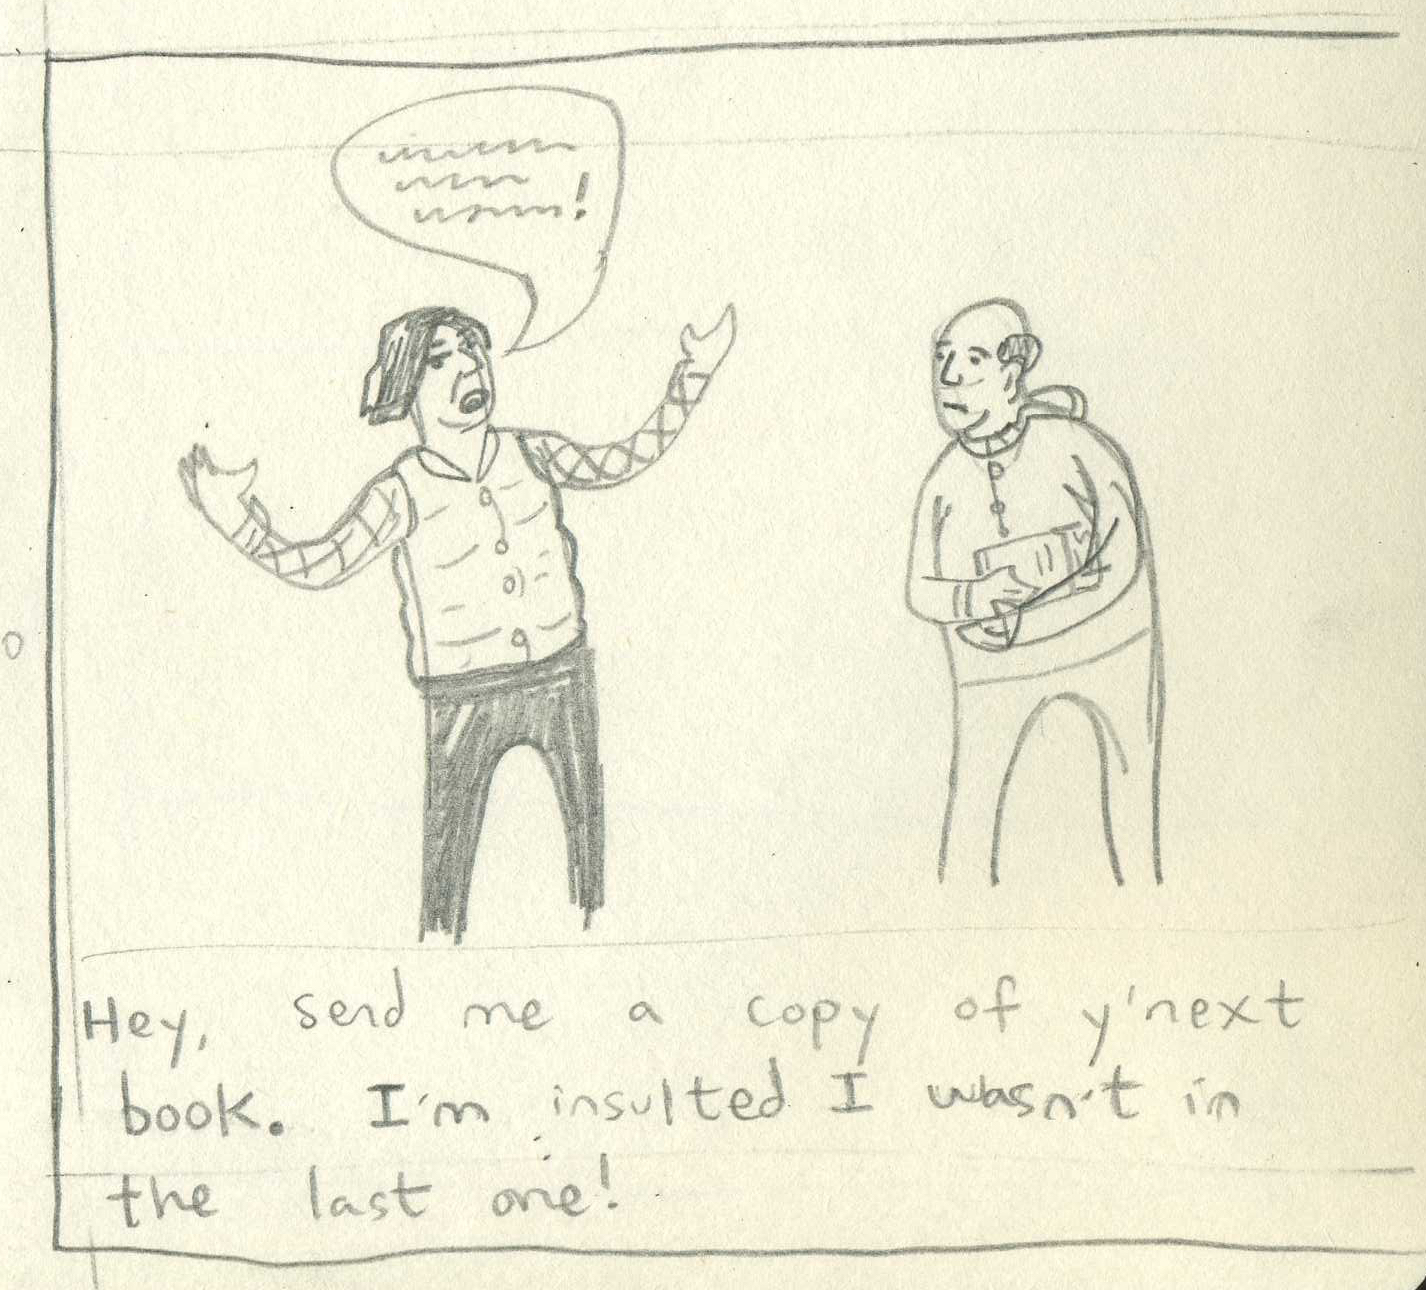 Hey, send me a copy of y'next
book. I'm insulted I wasn't in
the last one!